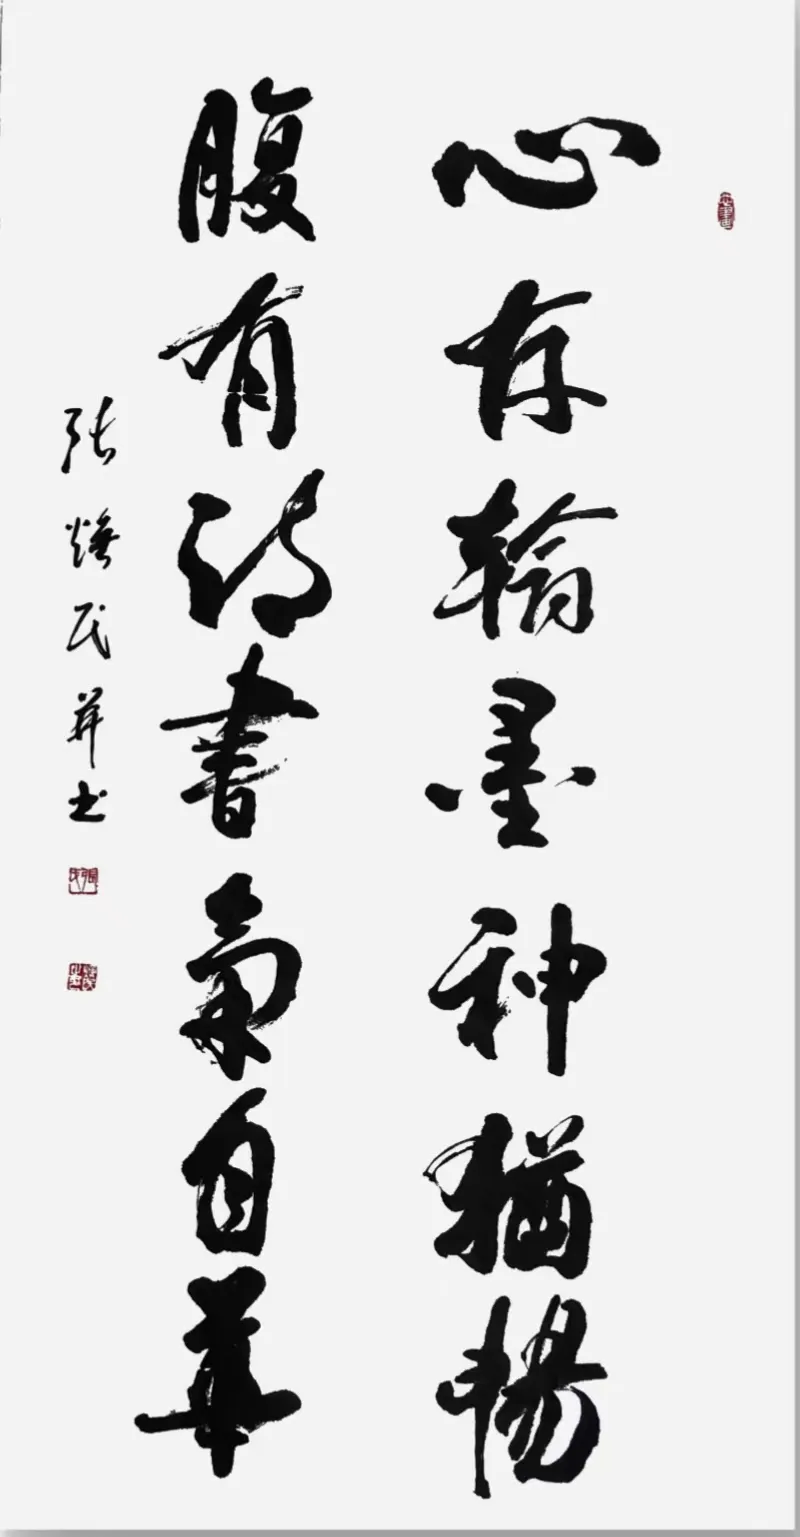 心存翰墨神猶暢
腹有詩書氣自華
張煥民并书